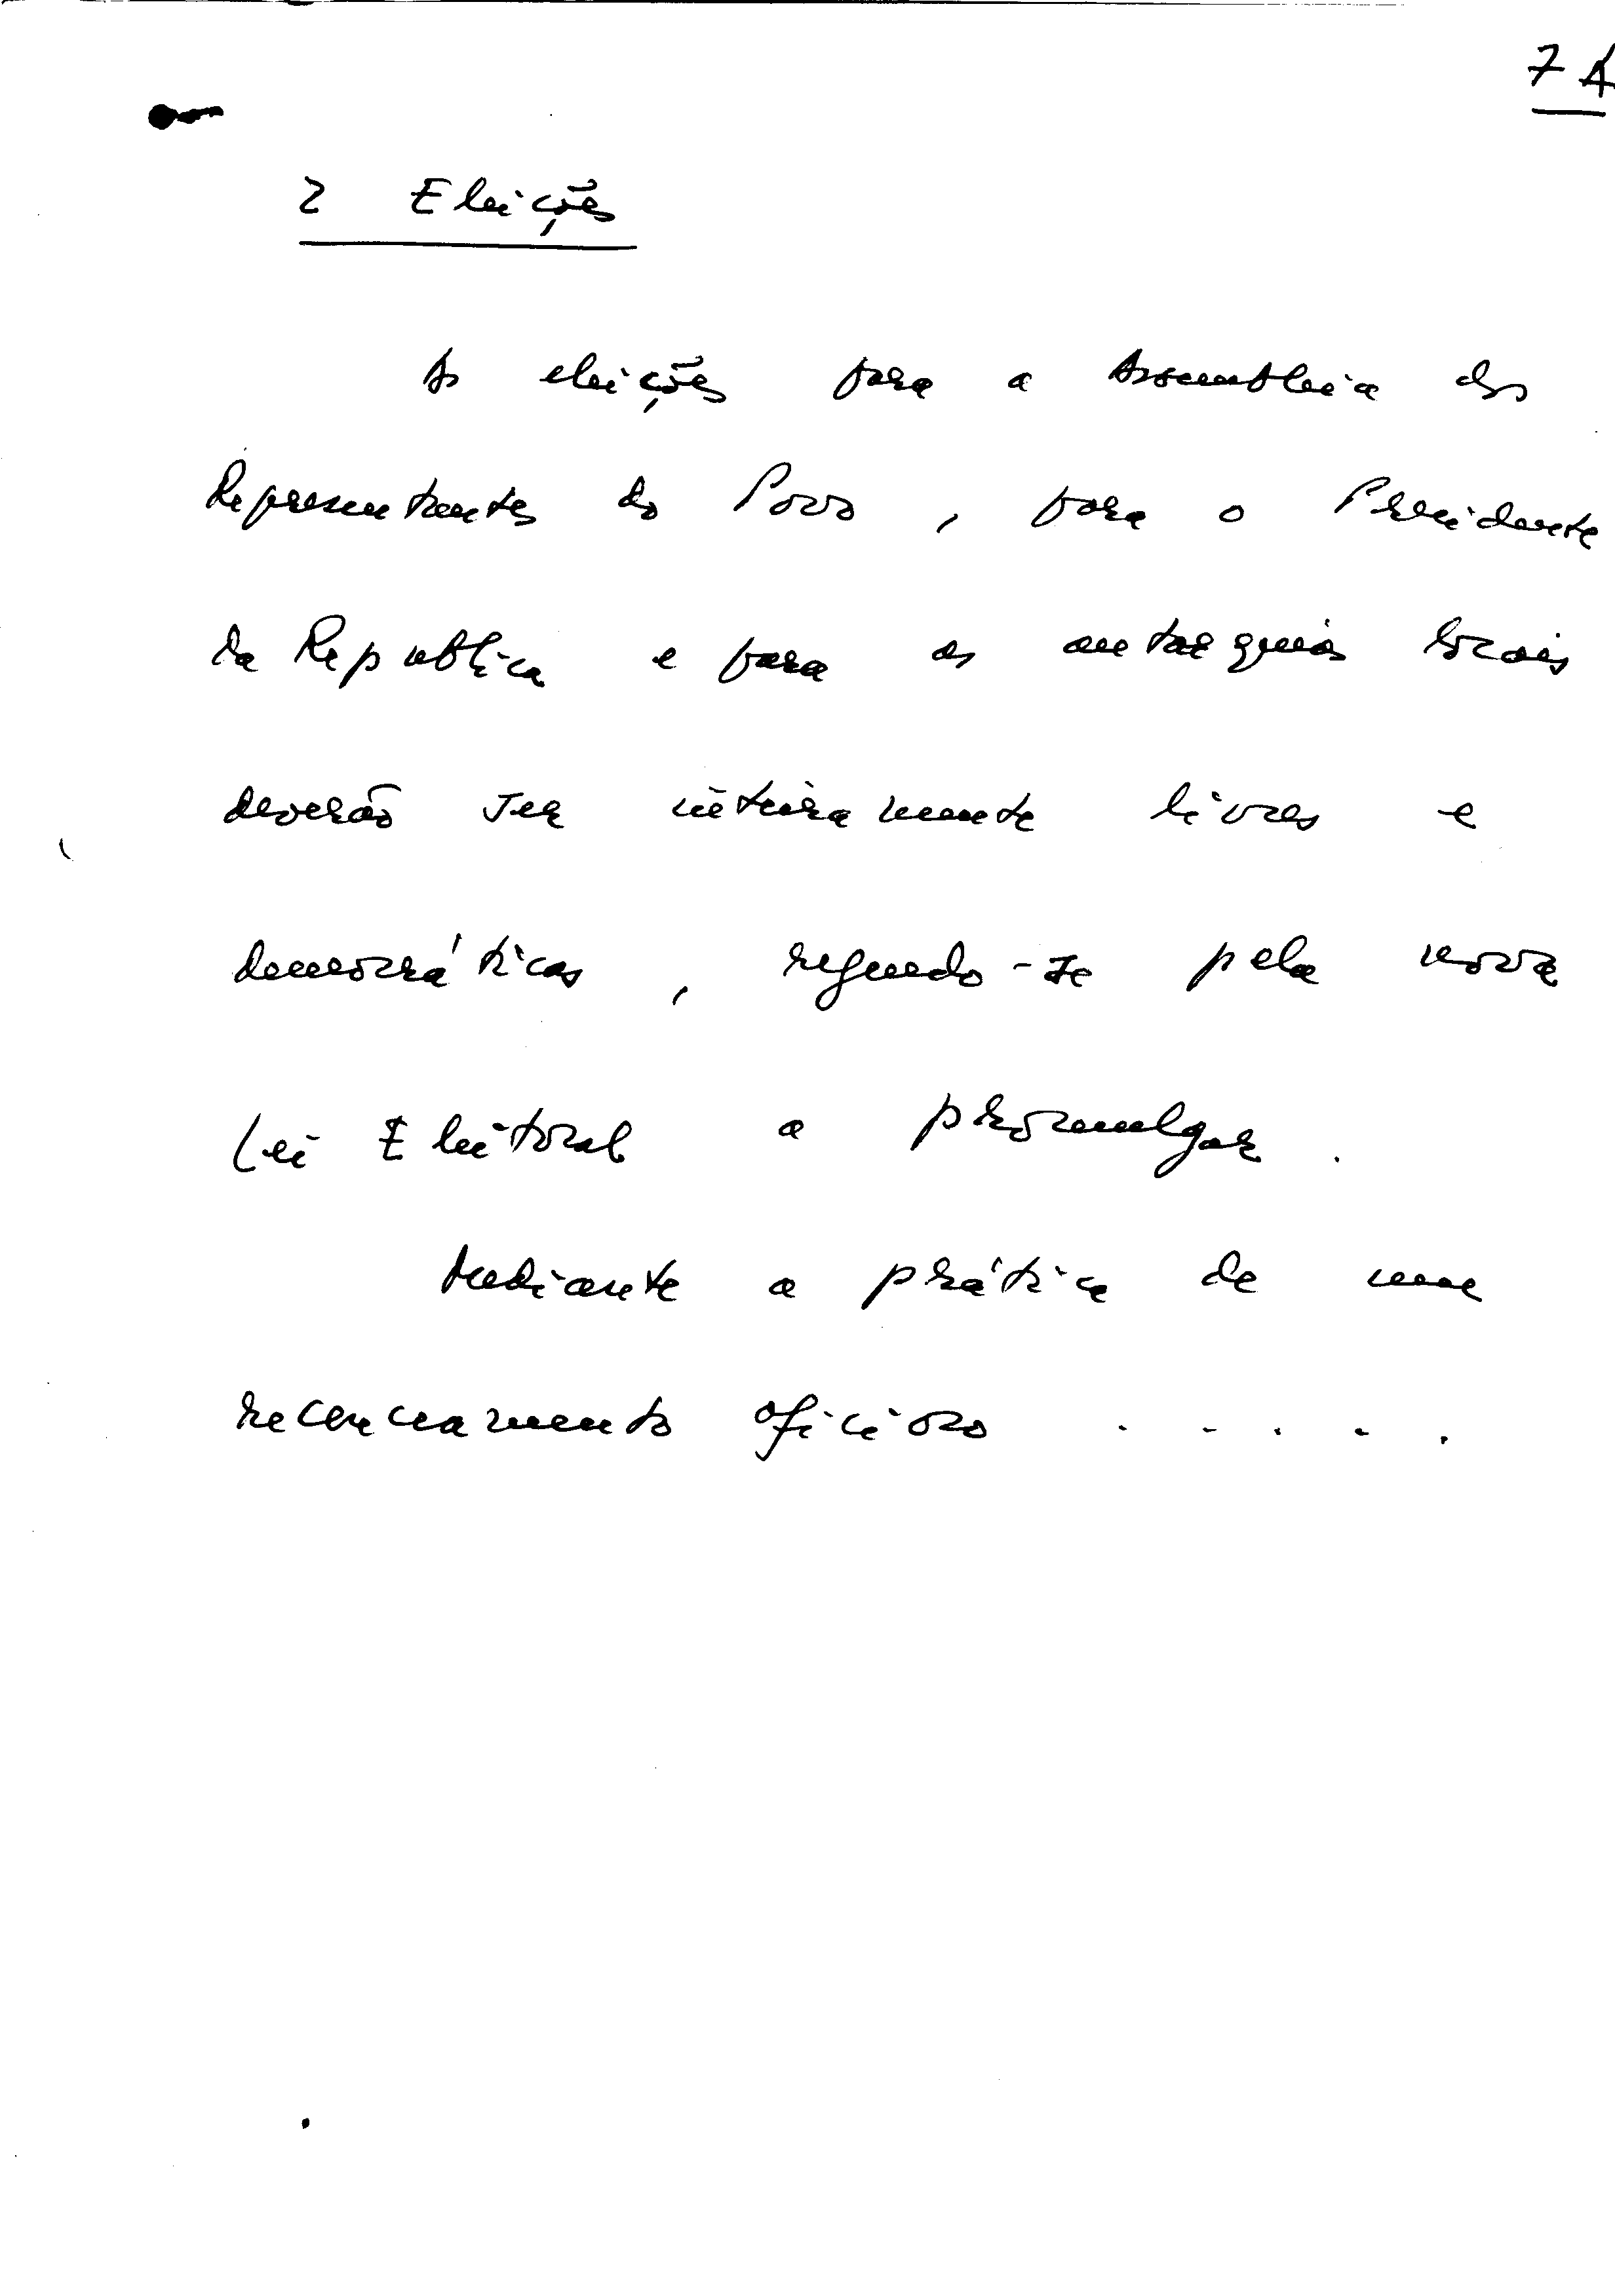 7A
2 Eleições
As eleições para a Assembleia dos
Representantes do Povo, para o Presidente
da Republica e para as autarquias locais
deverão ser inteiramente livres e
democráticas, regendo-se pela nova
Lei Eleitoral a promulgar.
Mediante a prática de um
recenceamento oficioso . . . . .